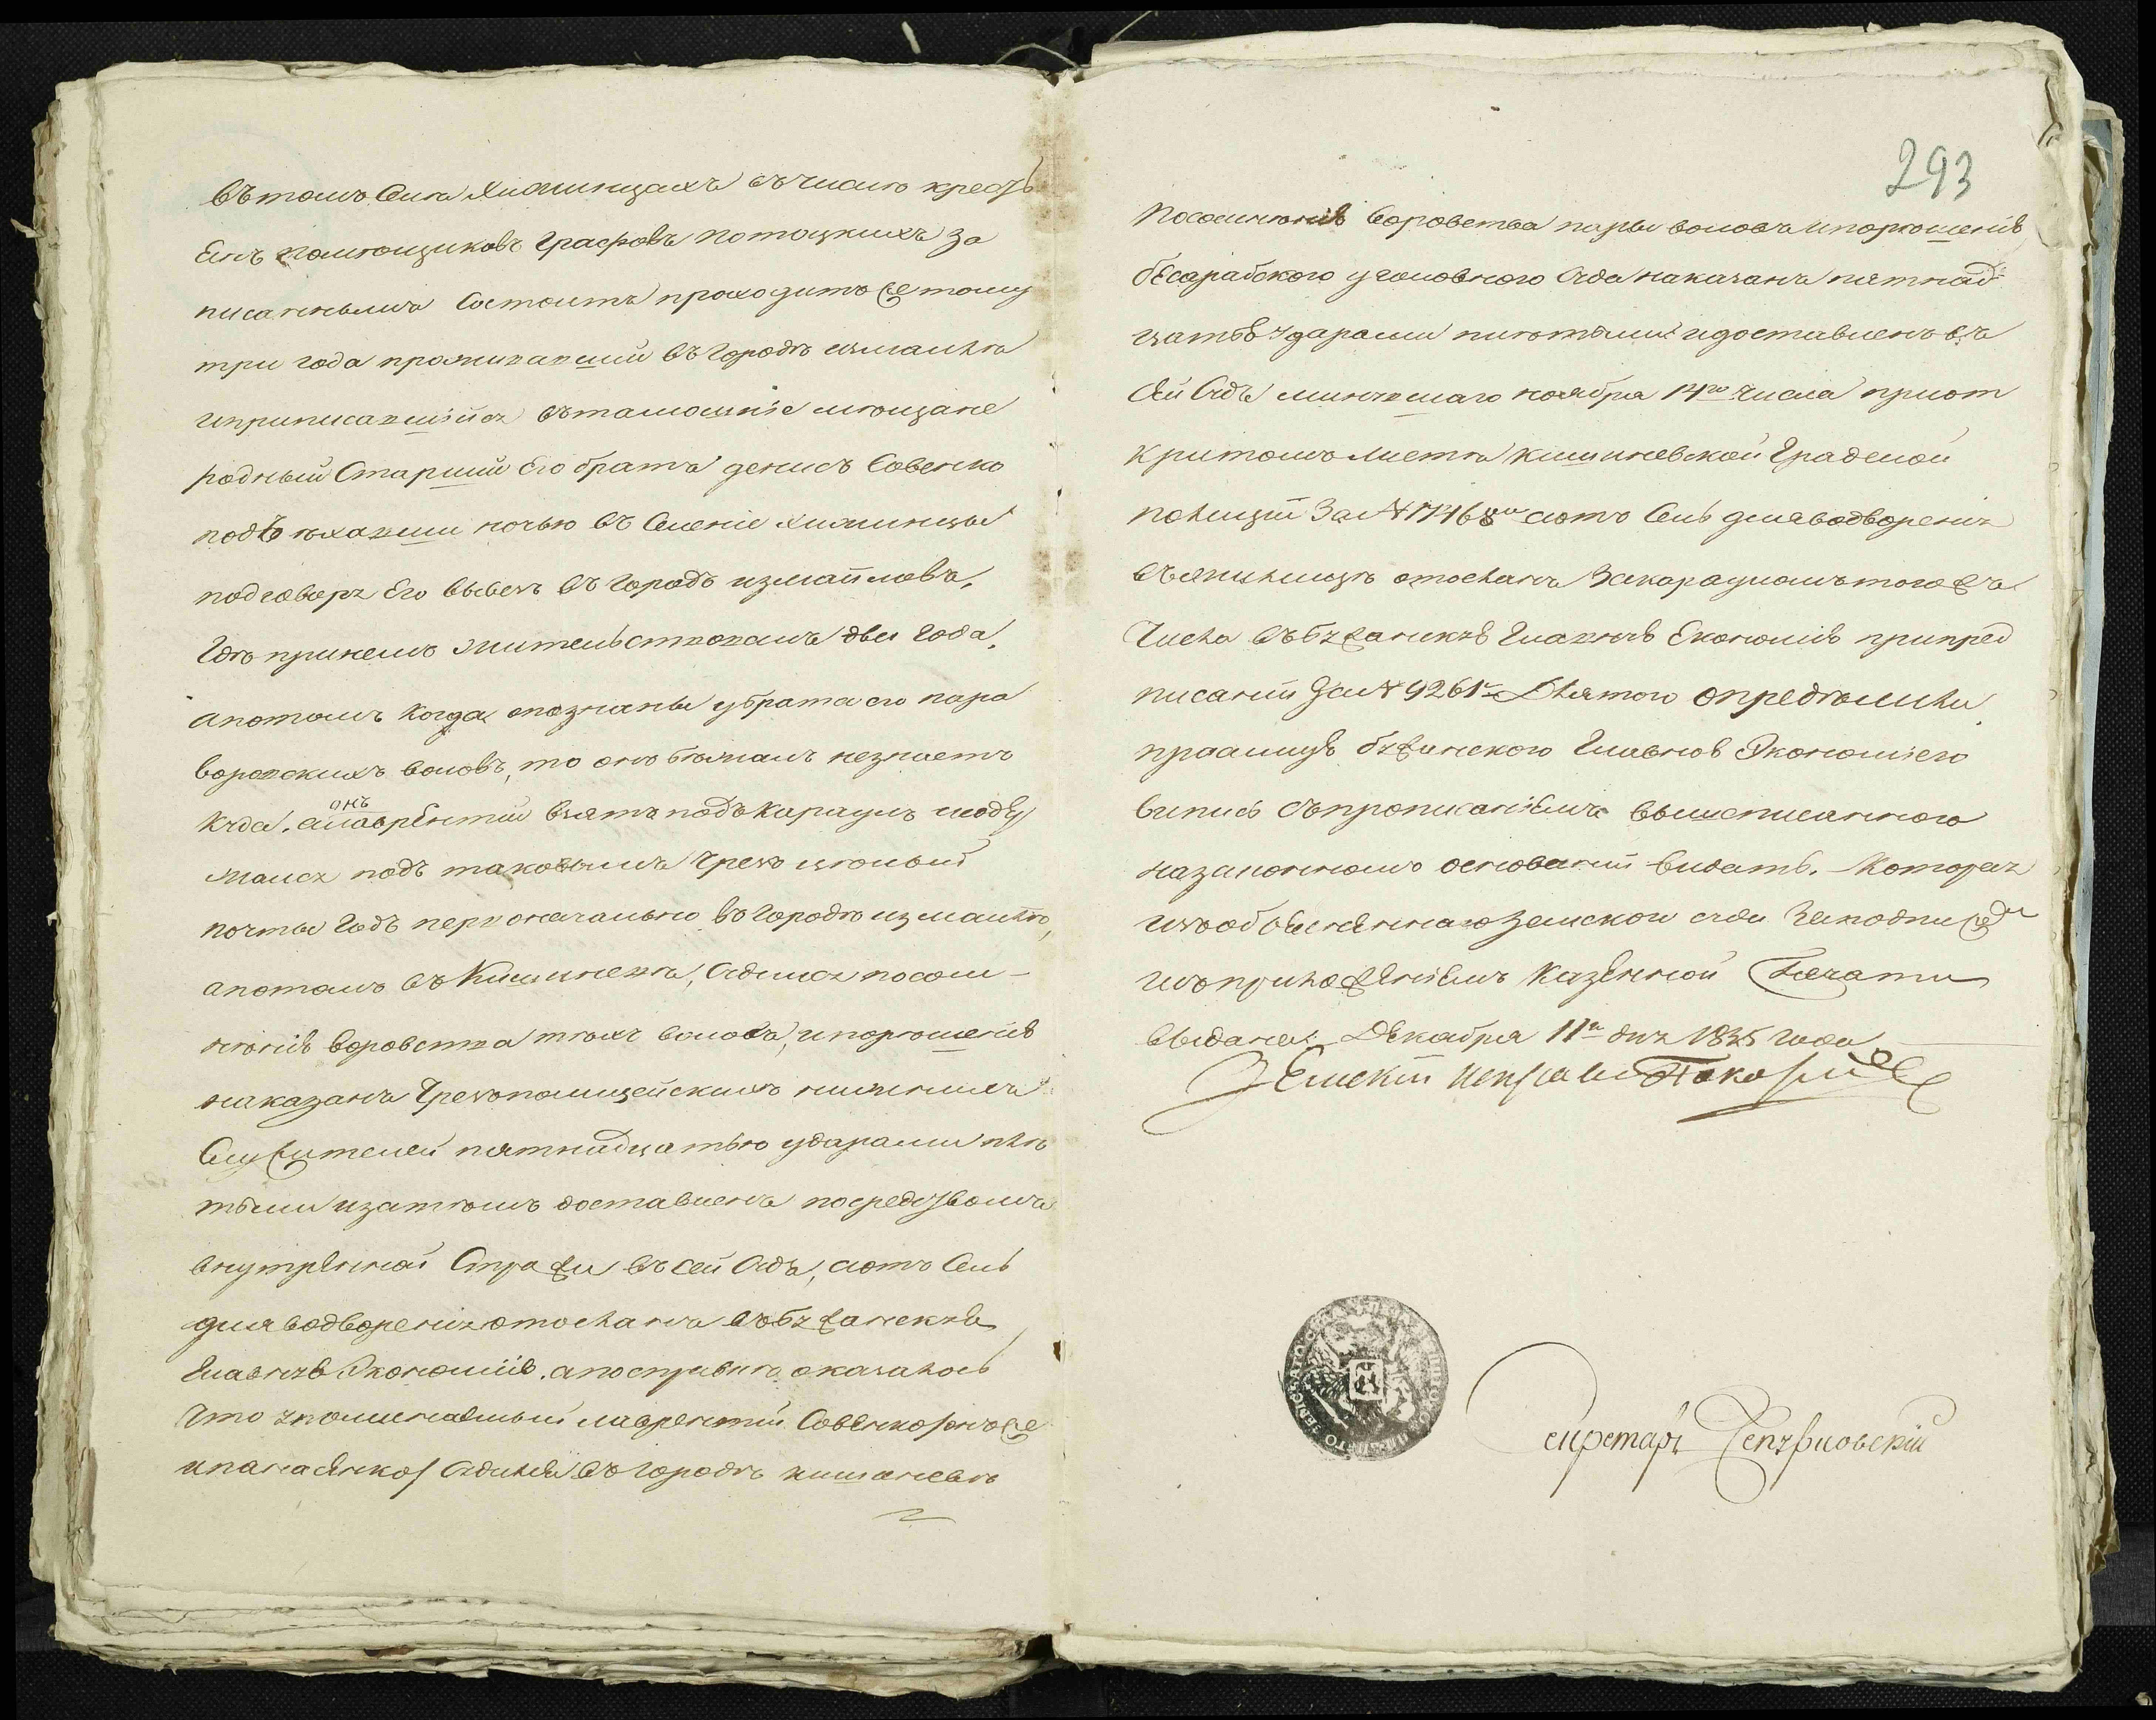 въ томъ Селѣ Химчинцахъ въ числѣ кресть
Енъ помѣщиковъ Графовъ потоцкихъ за
писаннымъ Состоитъ проходитъ Сему
три года проживавший въ Городѣ измаилѣ
и приписавшийся въ тамошние мѣщане
родный Старший Его братъ денисъ Совенко
подъѣхавши ночью въ Селение Химчинцы
подговоря Его вывезъ въ Городъ измаиловъ,
Гдѣ при немъ жительствовалъ два Года,
а потомъ когда опознаны у брата его пара
воровскихъ воловъ, то онъ бѣжалъ незнаетъ
куда, а онъ лаврентий взятъ подъ Караулъ и содер
жался подъ таковымъ чрезъ целый
почты Годъ первоначально въ Городѣ измаилѣ,
а потомъ въ Кишиневѣ, Судился по сом-
нению воровства тѣхъ воловъ, и по решению
наказанъ Чрезъ полицейскихъ нижнихъ
Служителей пятнадцатью ударами плѣ
тьми и затѣмъ доставленъ посредствомъ
внутренной Стражи въ сей Судъ, а отъ Сель
для водворения отосланъ въ бужанскую
Главную Экономию, а по справкѣ оказалось
Что упоминаемый лаврентий Совенко онъ же
и панасенко Судился въ Городѣ кишиневѣ
293
По сомнению Воровства пары воловъ и по решению
бЕсарабского уголовного Суда наказанъ пятнад
цатью ударами плѣтьми и доставленъ въ
сЕй Судъ минувшаго ноября 14го Числа при от
критомъ листѣ Кишиневской Градской
полиции За № 17468м а отъ Сель для водворения
въ отосланъ За карауломъ того жъ
Числа въ бужанскую Главную Економию при пред
писании За № 9261м Для того опредѣлили
бужанского Главной Экономиею
випись съ прописаниемъ вышеписанного
на законномъ основании видать. Которая
изъ земскои суда За подписомъ
и съ приложЕниЕмъ КазЕнной Печати
выдана Декабря 11го дня 1835 Года
ЗЕмский
Секретарь